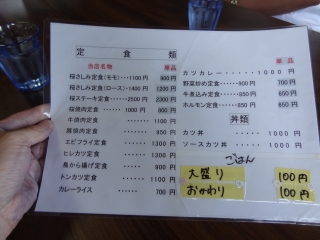 定食類
当店名物 単品
桜さしみ定食(モモ)・・・1100円 800円
桜さしみ定食(ロース)・・・・1400円 1200円
桜ステーキ定食・・・・・2500円 2300円
桜焼肉定食 1000円
牛焼肉定食 1100円
豚焼肉定食 950円
エビフライ定食 1300円
ヒレカツ定食 1300円
鳥から揚げ定食 900円
トンカツ定食 1100円
カレーライス 700円
単品
カツカレー 1000円
野菜炒め定食 900円 700円
牛煮込み定食 850円 650円
ホルモン定食 850円 650円
丼類
カツ丼 1000円
ソースカツ丼 1000円
ごはん
大盛り 100円
おかわり 100円